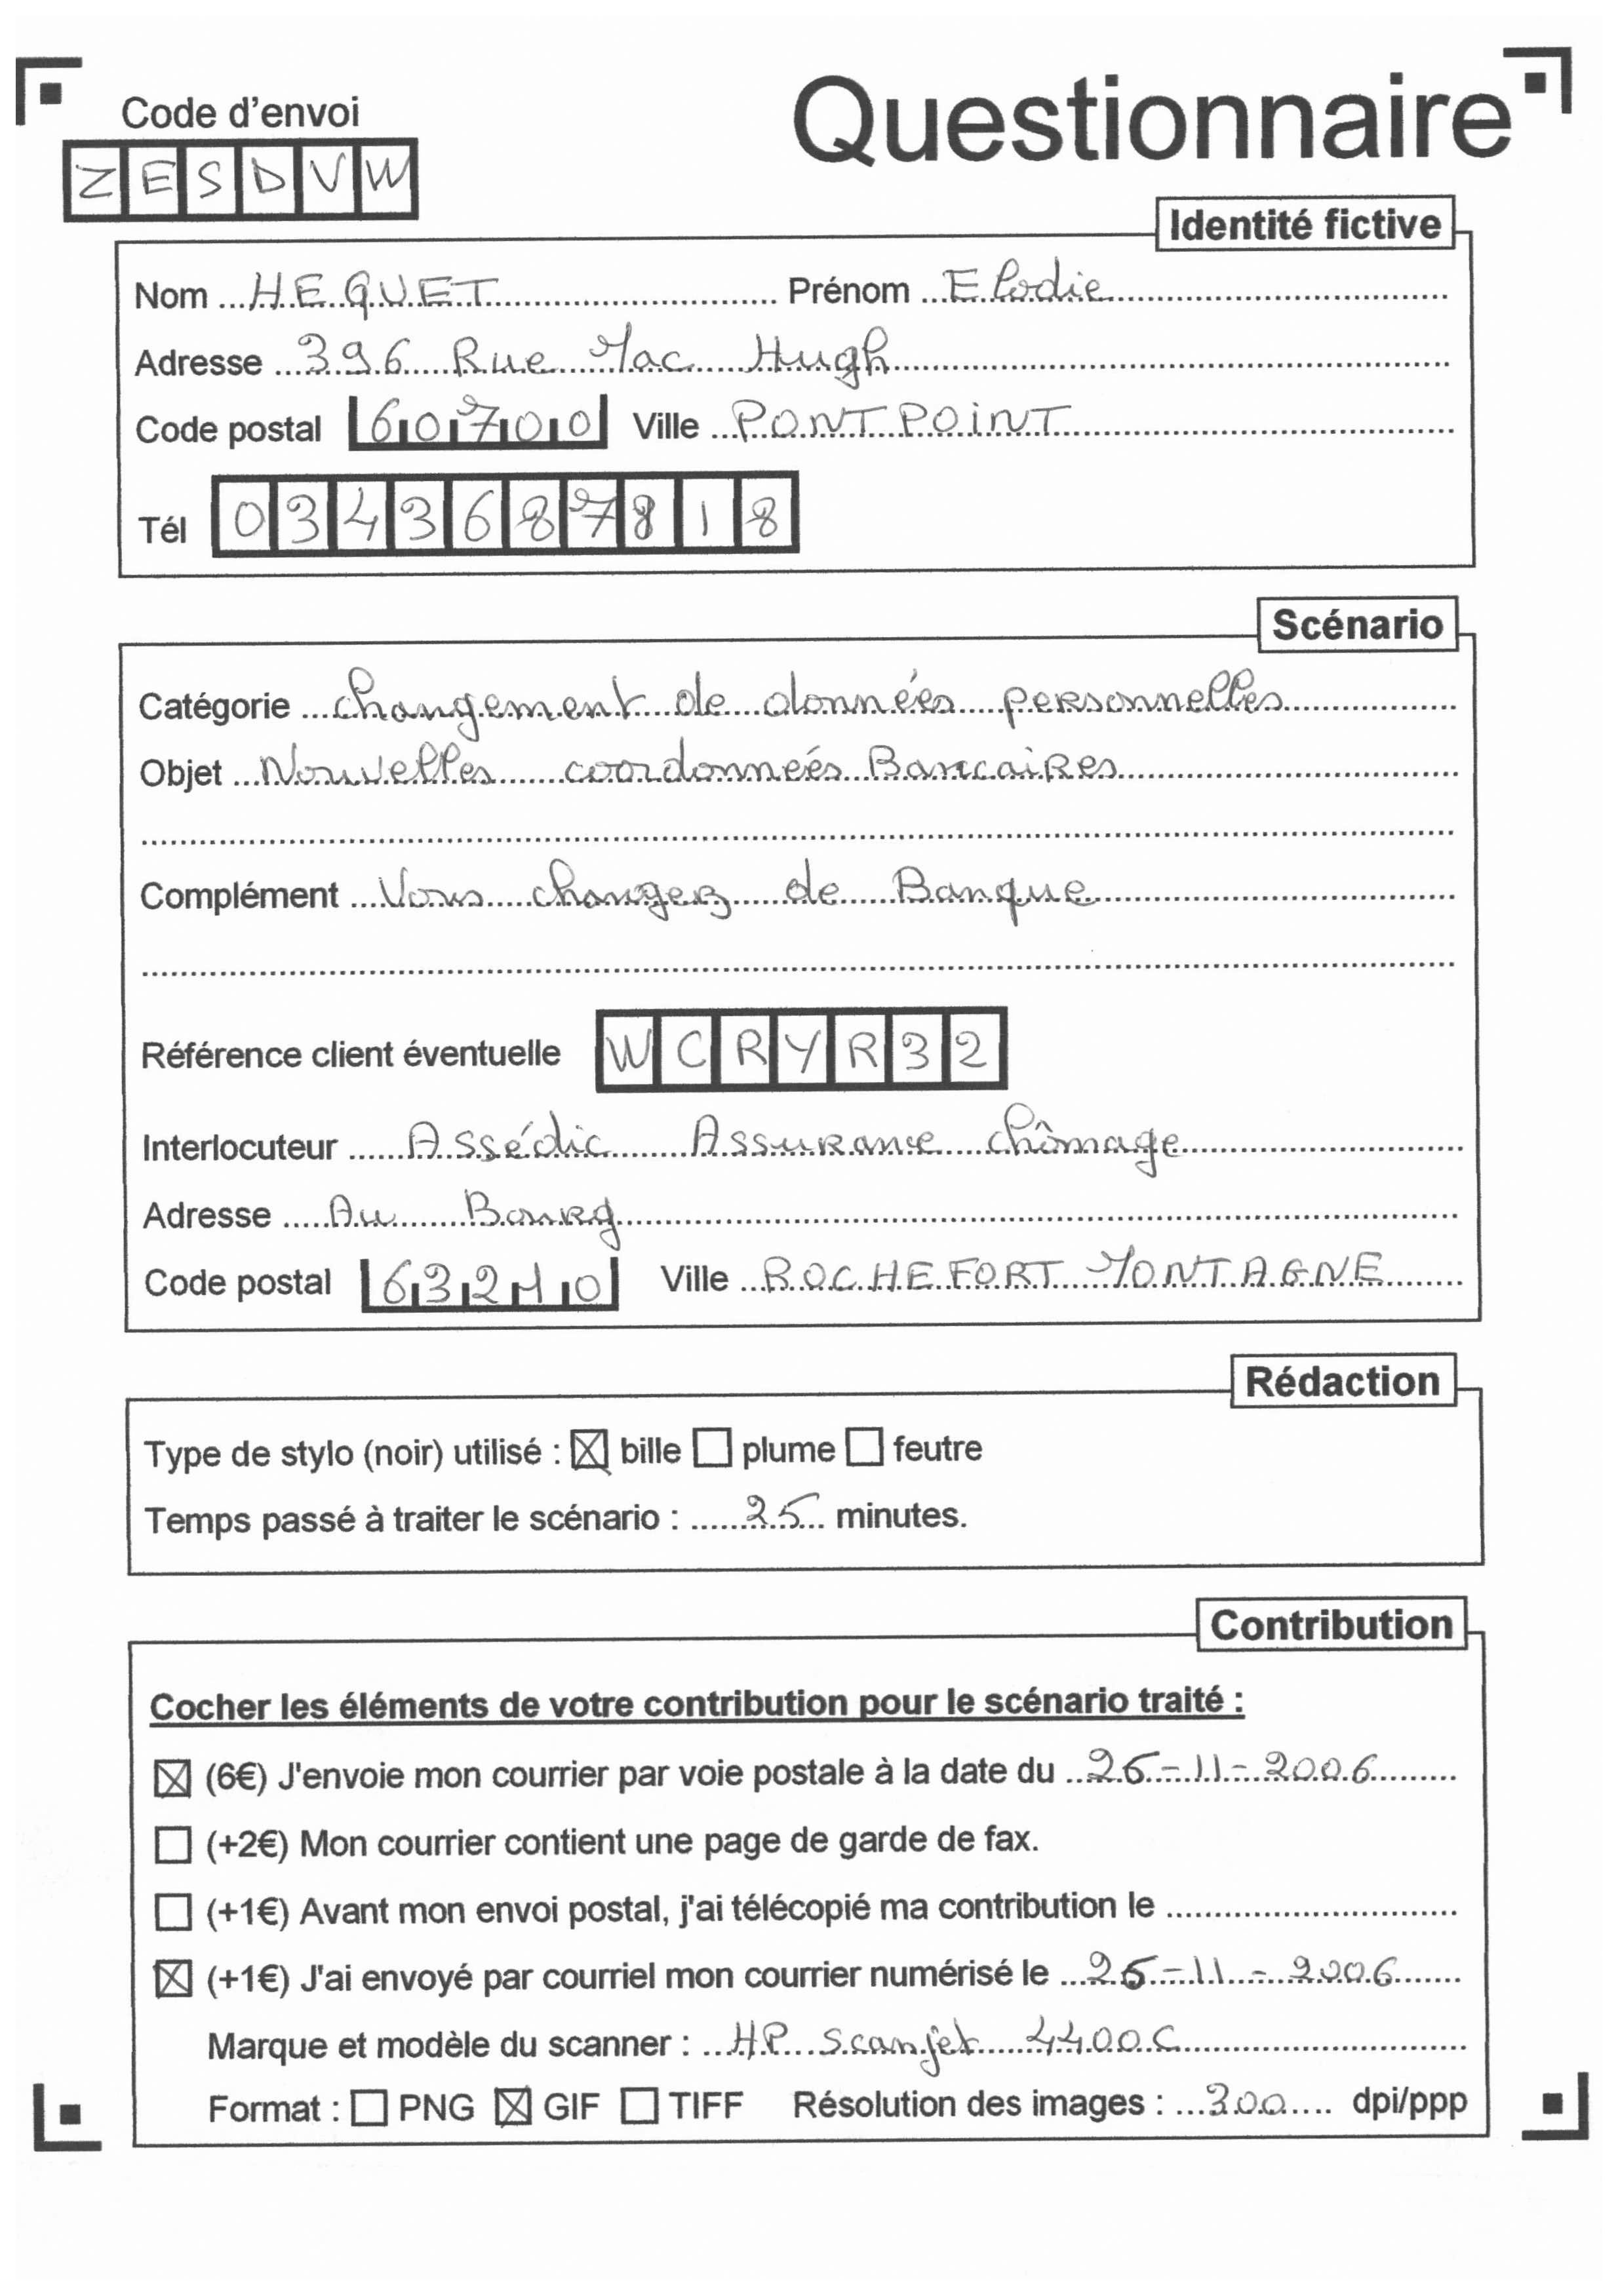 Questionnaire
Code d'envoi
ZESDVW
Identité fictive
Nom HEQUET Prénom Elodie
Adresse 396 Rue Mac Hugh
Code postal 60700 Ville PONTPOINT
Tél 0343687818
Scénario
Catégorie changement de données personnelles
Objet Nouvelles coordonnées Bancaires
Complément Vous changez de Banque
Référence client éventuelle WCRYR32
Interlocuteur Assédic Assurance chômage
Adresse Au Bourg
Code postal 63210 Ville ROCHEFORT MONTAGNE
Rédaction
Type de stylo (noir) utilisé : ☒ bille ☐ plume ☐ feutre
Temps passé à traiter le scénario : 25 minutes.
Contribution
Cocher les éléments de votre contribution pour le scénario traité :
☒ (6€) J'envoie mon courrier par voie postale à la date du 26-11-2006
☐ (+2€) Mon courrier contient une page de garde de fax.
☐ (+1€) Avant mon envoi postal, j'ai télécopié ma contribution le
☒ (+1€) J'ai envoyé par courriel mon courrier numérisé le 26-11-2006
Marque et modèle du scanner : HP Scanjet 4400C
Format : ☐ PNG ☒ GIF ☐ TIFF Résolution des images : 300 dpi/ppp